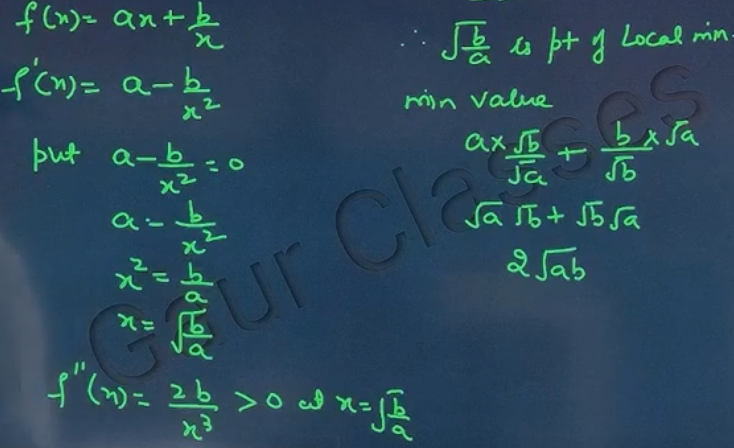 f(x) = ax + b/x
f'(x) = a - b/x²
put a - b/x² = 0
a = b/x²
x² = b/a
x = √(b/a)
f''(x) = 2b/x³ > 0 at x = √(b/a)
∴ √(b/a) is pt of Local min.
min value
a × √b/√a + b/√b × √a
√a √b + √b √a
2√ab
Gaur Classes